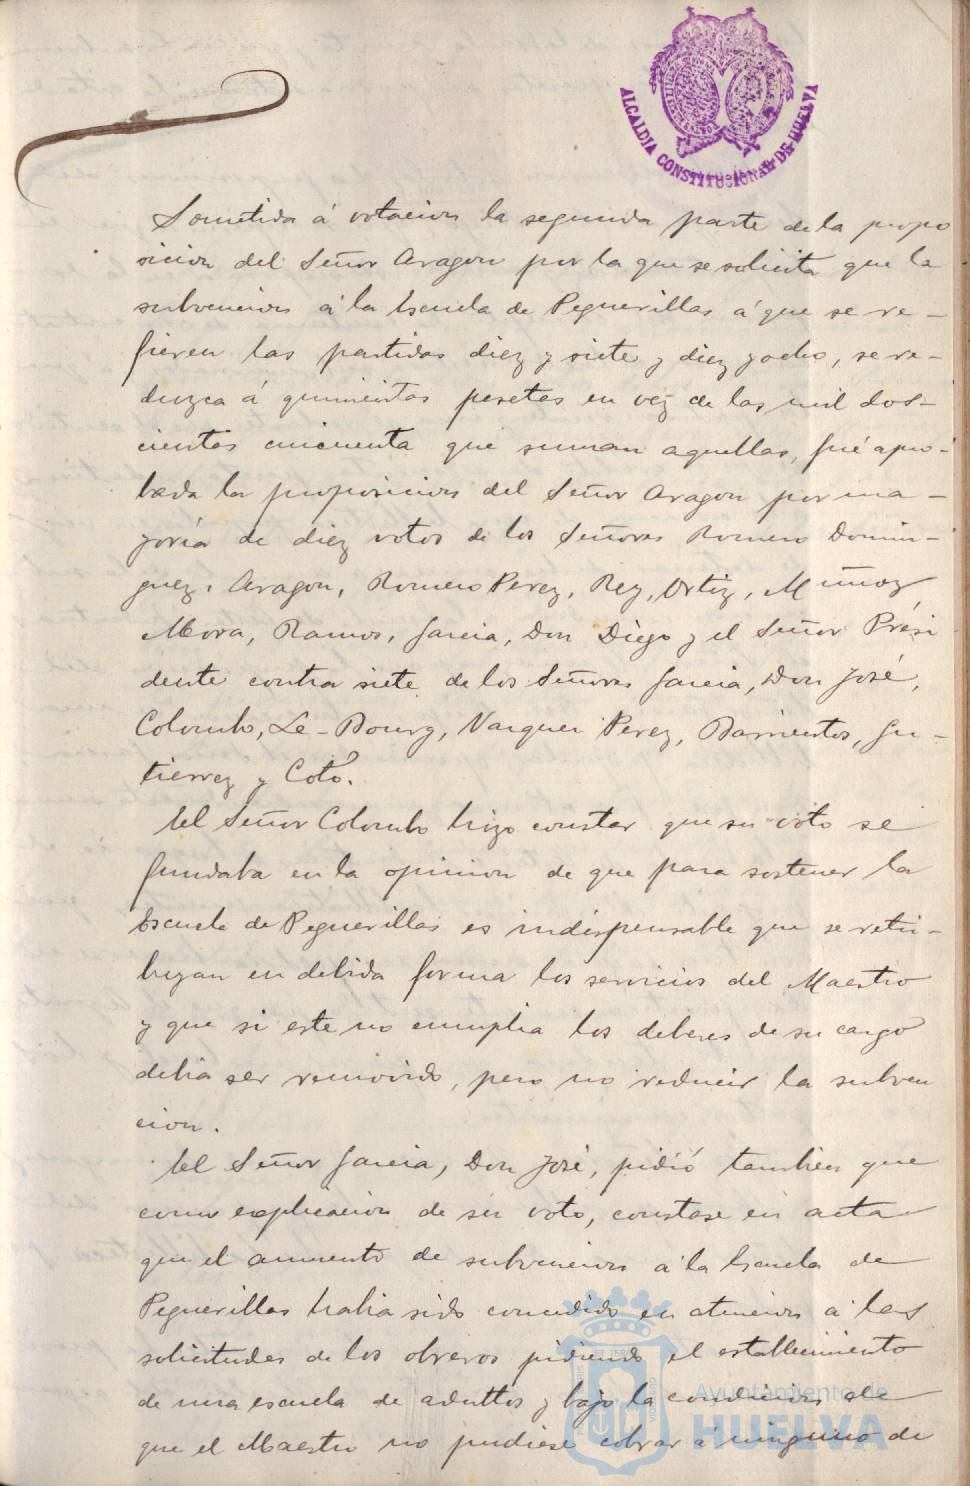 ALCALDIA CONSTITUCIONAL DE HUELVA
Sometida á votacion la segunda parte de la propo
sicion del Señor Aragon por la que se solicita que la
subvencion á la Escuela de Peguerillas á que se re-
fieren las partidas diez y siete y diez y ocho, se re-
duzca á quinientas pesetas en vez de las mil dos-
cientas cincuenta que suman aquellas, fué apro-
bada la proposicion del Señor Aragon por ma-
yoría de diez votos de los Señores Romero Domin-
guez, Aragon, Romero Perez, Rey, Ortiz, Muñoz
Mora, Ramos, Garcia, Don Diego y el Señor Presi
dente contra siete de los Señores Garcia, Don José,
Colombo, Le-Bourg, Vazquez Perez, Barrientos, Gu-
tierrez y Coto.
El Señor Colombo hizo constar que su voto se
fundaba en la opinion de que para sostener la
Escuela de Peguerillas es indispensable que se retri-
buyan en debida forma los servicios del Maestro
y que si este no cumplia los deberes de su cargo
debia ser removido, pero no reducir la subven
cion.
El Señor Garcia, Don José, pidió tambien que
como explicacion de su voto, constase en acta
que el aumento de subvencion á la Escuela de
Peguerillas habia sido concedido en atencion á las
solicitudes de los obreros pidiendo el establecimiento
de una escuela de adultos y bajo la condicion de
que el Maestro no pudiese cobrar á ninguno de
Ayuntamiento de
HUELVA